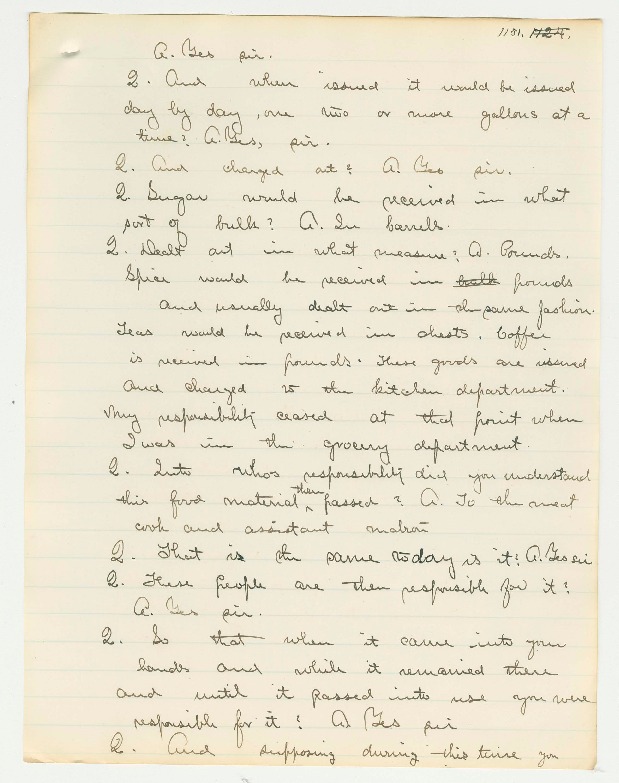 1151. 1124.
A. Yes sir.
Q. And when issued it would be issued
day by day, one two or more gallons at a
time? A. Yes, sir.
Q. And charged out? A. Yes sir.
Q. Sugar would be received in what
sort of bulk? A. In barrels.
Q. Dealt out in what measure? A. Pounds.
Spice would be received in bulk pounds
and usually dealt out in the same fashion.
Teas would be received in chests. Coffee
is received in pounds. These goods are issued
and charged to the kitchen department.
My responsibility ceased at that point when
I was in the grocery department.
Q. Into who's responsibility did you understand
this food material then passed? A. To the meat
cook and assistant matron
Q. That is the same today is it? A. Yes sir
Q. These people are then responsible for it?
A. Yes sir.
Q. So that when it came into your
hands and while it remained there
and until it passed into use you were
responsible for it? A. Yes sir
Q. And supposing during this time you